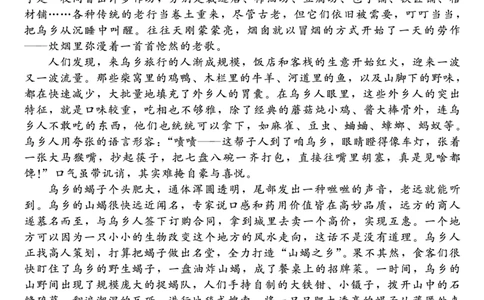 各种传统的老行当卷土重来，尽管古老，但它们依旧被需要，叮叮当当，
把乌乡从沉睡中叫醒。往往天刚蒙蒙亮，烟囱就以冒烟的方式开始了一天的劳作
——炊烟里弥漫着一首首怆然的老歌。
人们发现，来乌乡旅行的人渐成规模，饭店和客栈的生意开始红火，迎来一波
又一波流量。那些柴窝里的鸡鸭、木栏里的牛羊、河道里的鱼，以及山脚下的野味，
都在快速减少，大批量地填充了外乡人的胃囊。在乌乡人眼里，这些外乡人的突出
特征，就是口味较重，吃相也不够雅，除了经典的蘑菇炖小鸡、酱大棒骨外，连乌
乡人不敢吃的东西，他们也统统可以拿下，如麻雀、豆虫、蛐蛐、蟑螂、蚂蚁等。
乌乡人用夸张的语言形容：“啧啧——这帮子人到了咱乌乡，眼睛瞪得像车灯，张着
一张大马猴嘴，抄起筷子，把七盘八碗一齐打包，直接往嘴里胡塞，真是见啥都
馋！”口气虽带讥诮，其实难掩自豪与喜悦。
乌乡的蝎子个头肥大，通体浑圆透明，尾部发出一种咝咝的声音，老远就能听
到。乌乡的山蝎很快远近闻名，专家说口感和药用价值皆在高妙品质，远方的商人
遂慕名而至，与乌乡人签下订购合同，拿到城里去卖一个高价，实现互惠。一个地
方可以因为一只小小的生物改变这个地方的风水走向，这话不是没有道理。乌乡人
正找高人策划，打算把蝎子做出名堂，全力打造“山蝎之乡”。果不其然，食客们很
快盯住了乌乡的野生蝎子，一盘油炸山蝎，成了餐桌上的招牌菜。一时间，乌乡的
山野间出现了规模庞大的捉蝎队，人们手持自制的大铁钳、小镊子，拨开山中的石